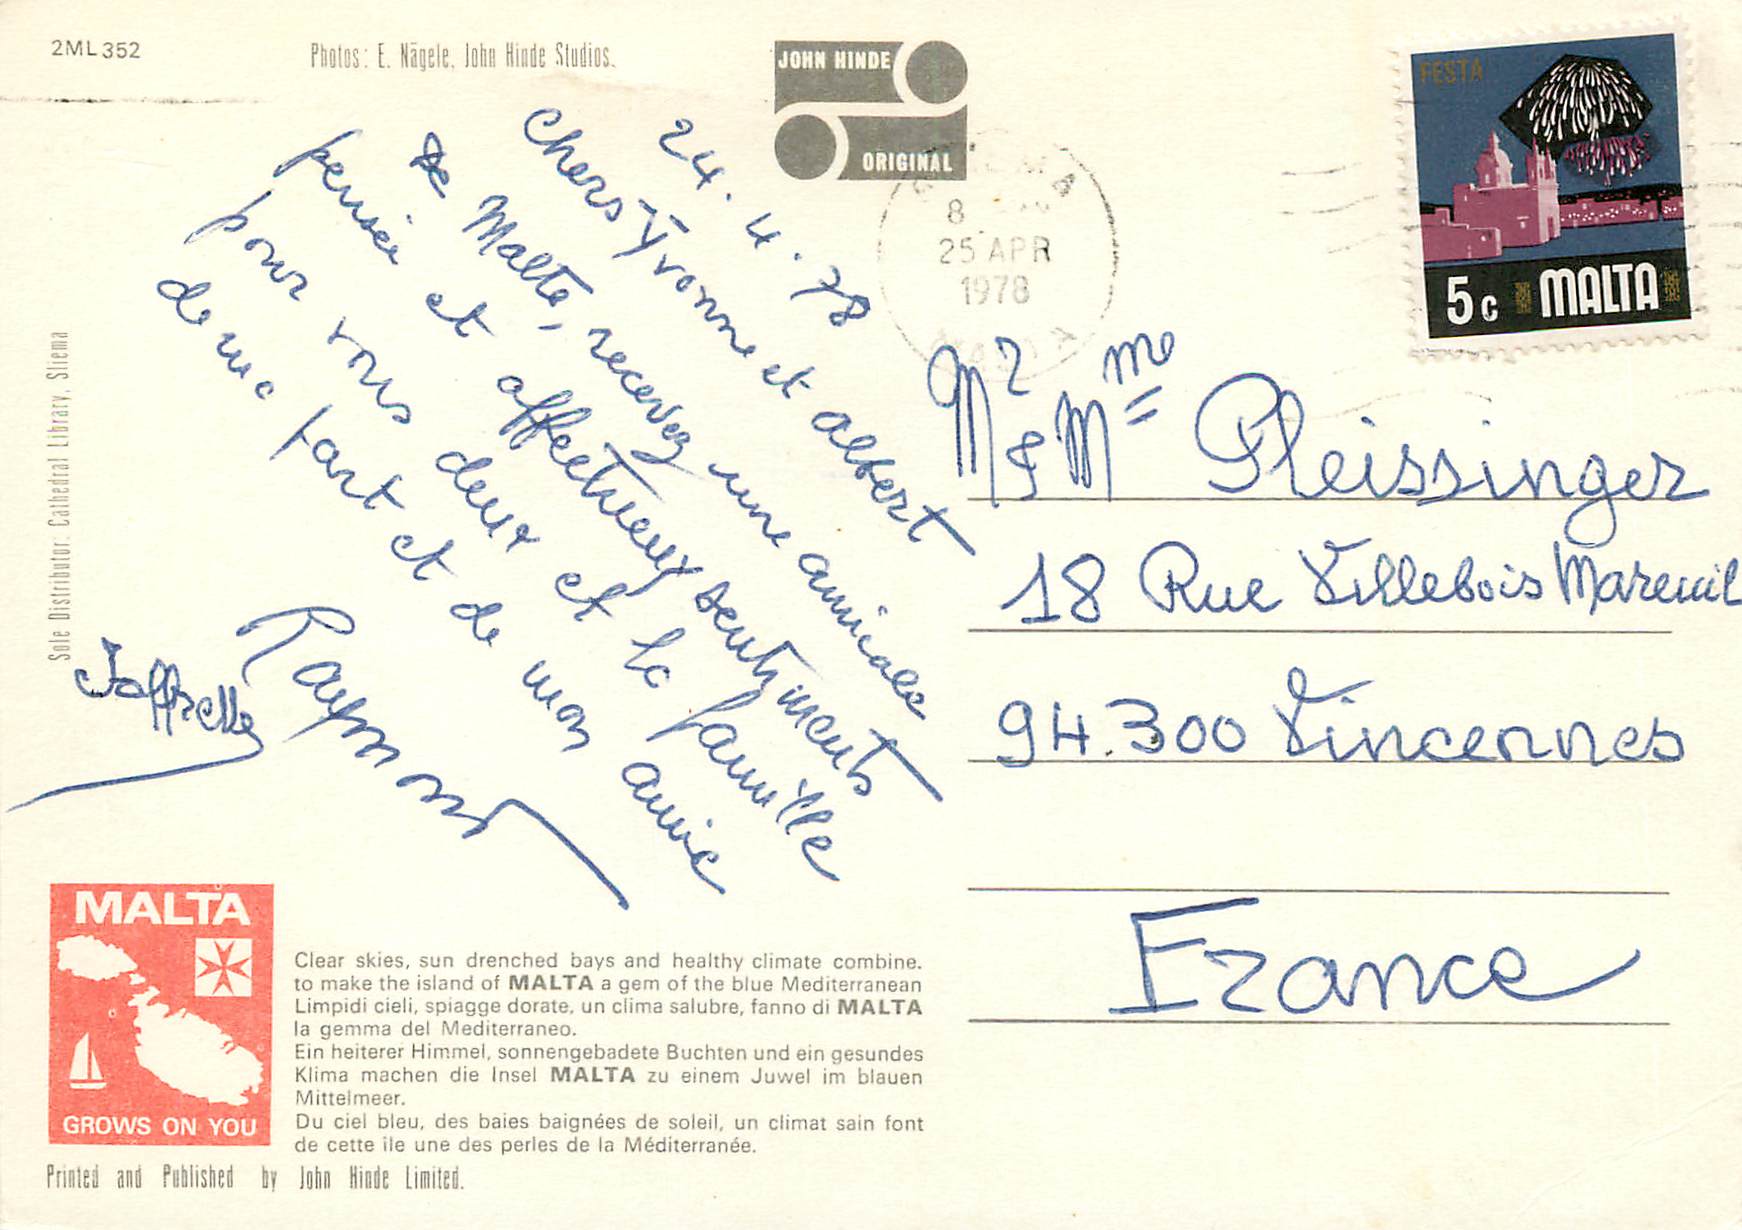 2ML352
Photos: E. Nägele, John Hinde Studios.
JOHN HINDE
ORIGINAL
FESTA
5c MALTA
8
25 APR
1978
24.4.78
Chers Yvonne et Albert
De Malte, recevez une amicale
pensée et affectueux sentiments
pour vous deux et la famille
de ma part et de mon amie
Raymond
Mr & Mme Pleissinger
18 Rue Villebois Mareuil
94.300 Vincennes
France
Sole Distributor: Cathedral Library, Sliema
MALTA
GROWS ON YOU
Clear skies, sun drenched bays and healthy climate combine.
to make the island of MALTA a gem of the blue Mediterranean
Limpidi cieli, spiagge dorate, un clima salubre, fanno di MALTA
la gemma del Mediterraneo.
Ein heiterer Himmel, sonnengebadete Buchten und ein gesundes
Klima machen die Insel MALTA zu einem Juwel im blauen
Mittelmeer.
Du ciel bleu, des baies baignées de soleil, un climat sain font
de cette île une des perles de la Méditerranée.
Printed and Published by John Hinde Limited.